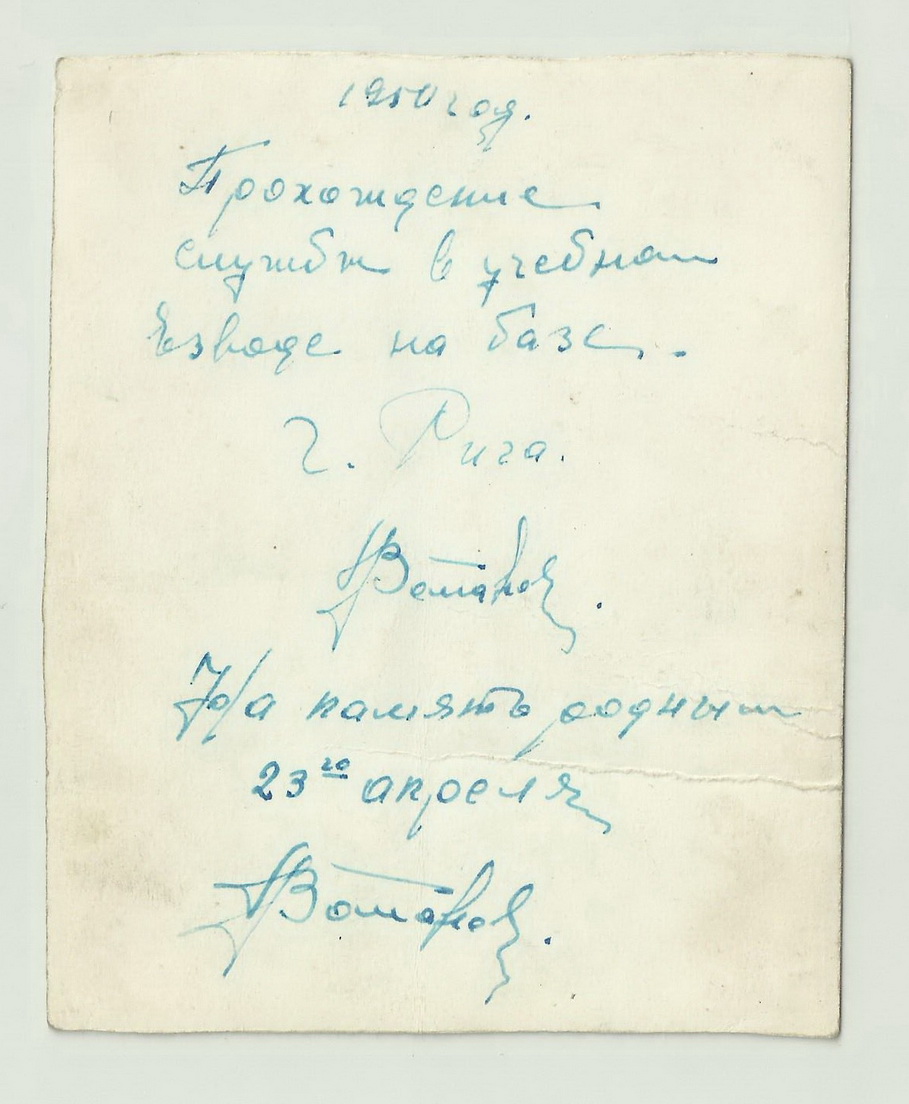 1950 год.
Прохождение
службы в учебном
взводе на базе.
г. Рига.
На память родным
23го апреля